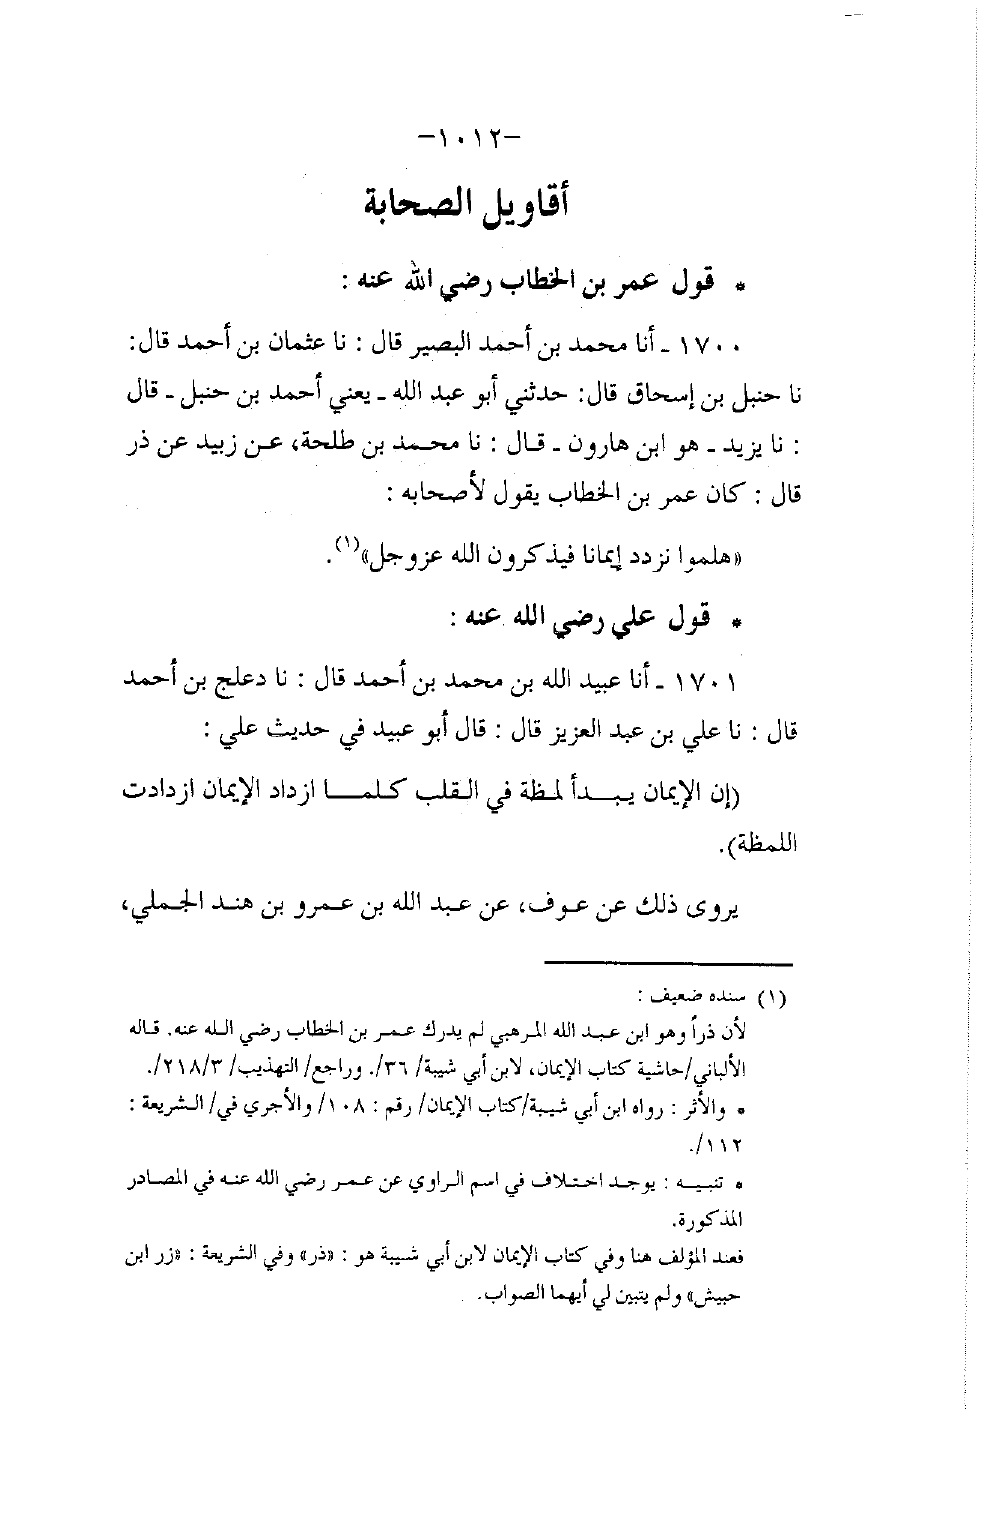 -١٠١٢-
أقاويل الصحابة
* قول عمر بن الخطاب رضي الله عنه :
١٧٠٠ ـ أنا محمد بن أحمد البصير قال : نا عثمان بن أحمد قال:
نا حنبل بن إسحاق قال: حدثني أبو عبد الله ـ يعني أحمد بن حنبل ـ قال
: نا يزيد ـ هو ابن هارون ـ قال : نا محمد بن طلحة، عن زبيد عن ذر
قال : كان عمر بن الخطاب يقول لأصحابه :
«هلموا نزدد إيمانا فيذكرون الله عزوجل»(١).
* قول علي رضي الله عنه :
١٧٠١ ـ أنا عبيد الله بن محمد بن أحمد قال : نا دعلج بن أحمد
قال : نا علي بن عبد العزيز قال : قال أبو عبيد في حديث علي :
(إن الإيمان يبدأ لمظة في القلب كلما ازداد الإيمان ازدادت
اللمظة).
يروى ذلك عن عوف، عن عبد الله بن عمرو بن هند الجملي،
(١) سنده ضعيف :
لأن ذراً وهو ابن عبد الله المرهبي لم يدرك عمر بن الخطاب رضي الله عنه. قاله
الألباني/حاشية كتاب الإيمان، لابن أبي شيبة/ ٣٦/. وراجع/ التهذيب/ ٢١٨/٣/.
* والأثر : رواه ابن أبي شيبة/كتاب الإيمان/ رقم : ١٠٨/ والأجري في/ الشريعة :
١١٢/.
* تنبيه : يوجد اختلاف في اسم الراوي عن عمر رضي الله عنه في المصادر
المذكورة.
فعند المؤلف هنا وفي كتاب الإيمان لابن أبي شيبة هو : «ذر» وفي الشريعة : «زر ابن
حبيش» ولم يتبين لي أيهما الصواب.